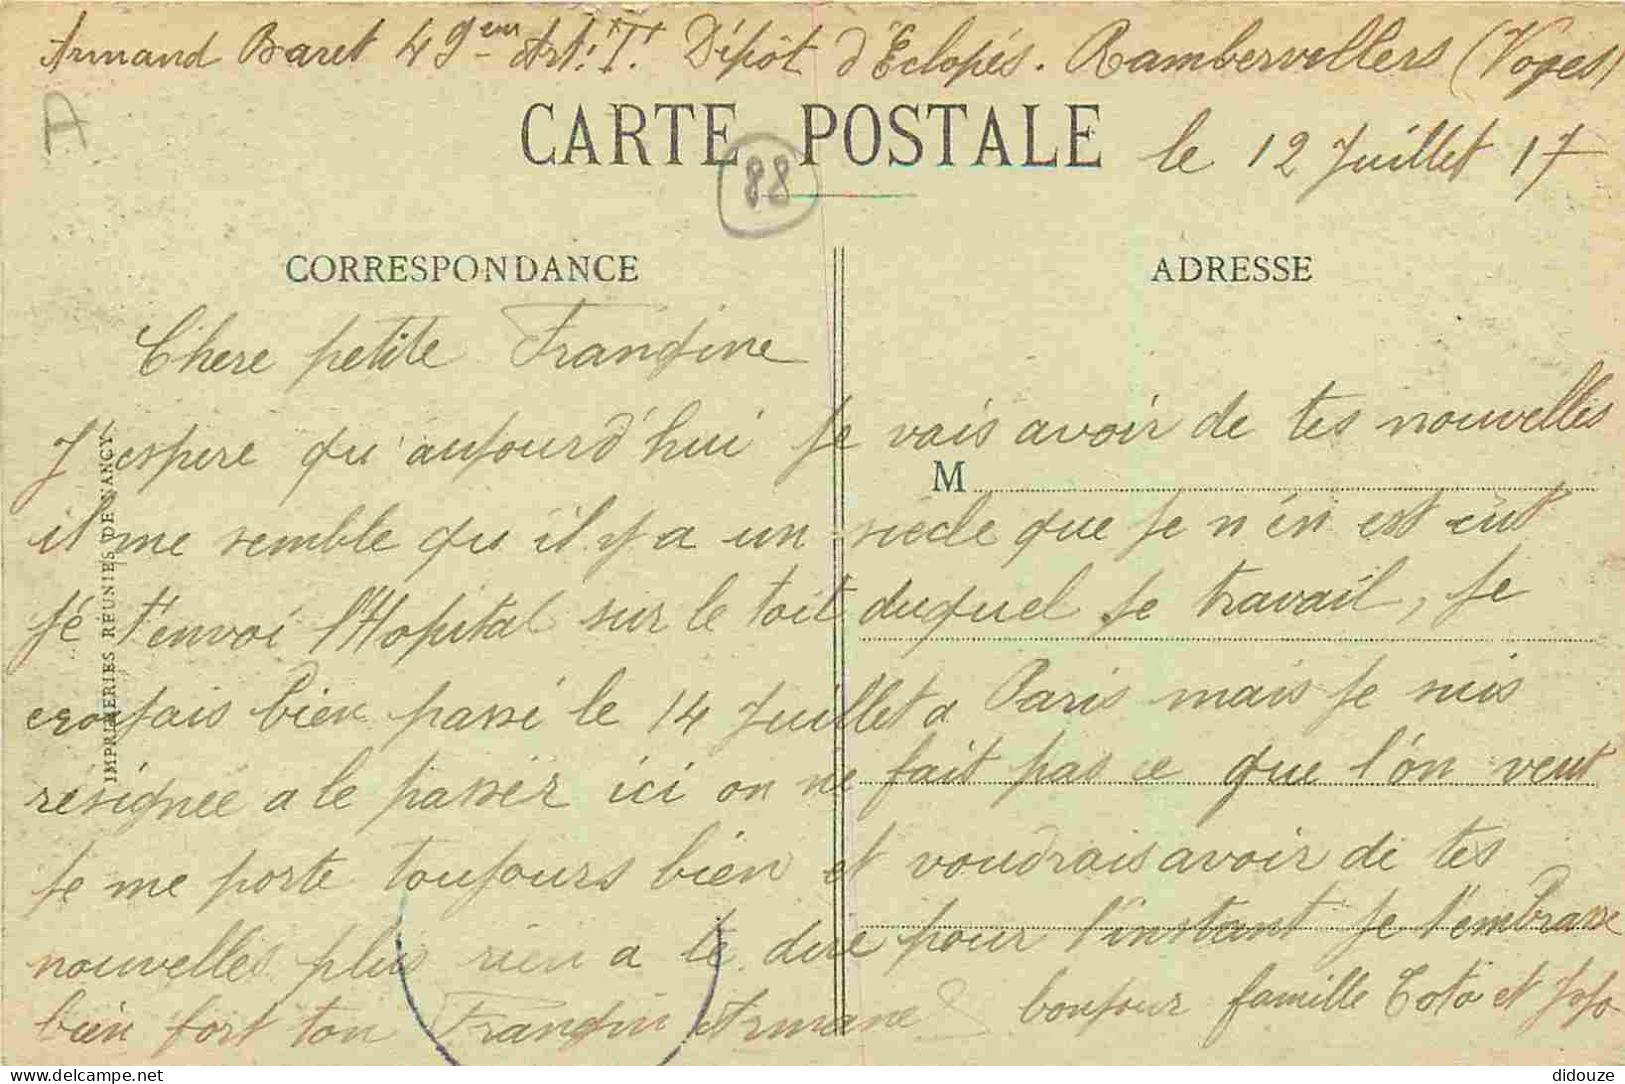 Armand Baret 49em Art. T. Dépôt d'Éclopés. Rambervellers (Voges)
A
CARTE POSTALE
le 12 Juillet 17
88
CORRESPONDANCE
ADRESSE
Chere petite Frangine
J'espere qu'aujourd'hui je vais avoir de tes nouvelles
M
il me semble qu'il y a un siècle que je n'en est eut
je t'envoi l'Hopital sur le toit duquel je travail, je
croyais bien passé le 14 Juillet a Paris mais je suis
résignée a le passer ici on ne fait pas ce que l'on veut
je me porte toujours bien et voudrais avoir de tes
nouvelles plus rien a te dire pour l'instant je t'embrasse
bien fort ton Frangin Armand bonjour famille Toto et Jojo
IMPRIMERIES RÉUNIES DE NANCY
didouze